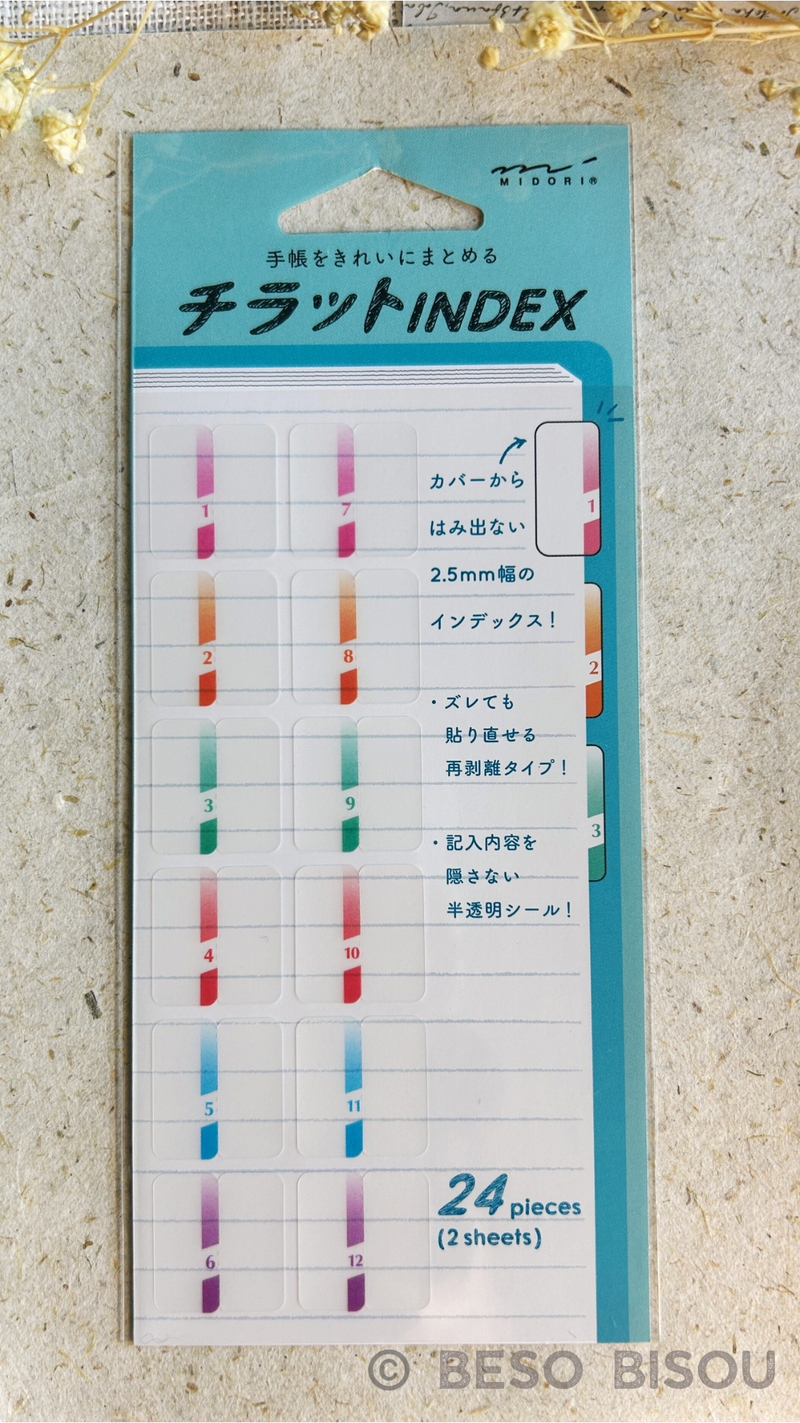 MIDORI®
手帳をきれいにまとめる
チラットINDEX
カバーから
はみ出ない
2.5mm幅の
インデックス!
・ズレても
貼り直せる
再剥離タイプ!
・記入内容を
隠さない
半透明シール!
1
2
3
1 7
2 8
3 9
4 10
5 11
6 12
24 pieces
(2 sheets)
© BESO BISOU